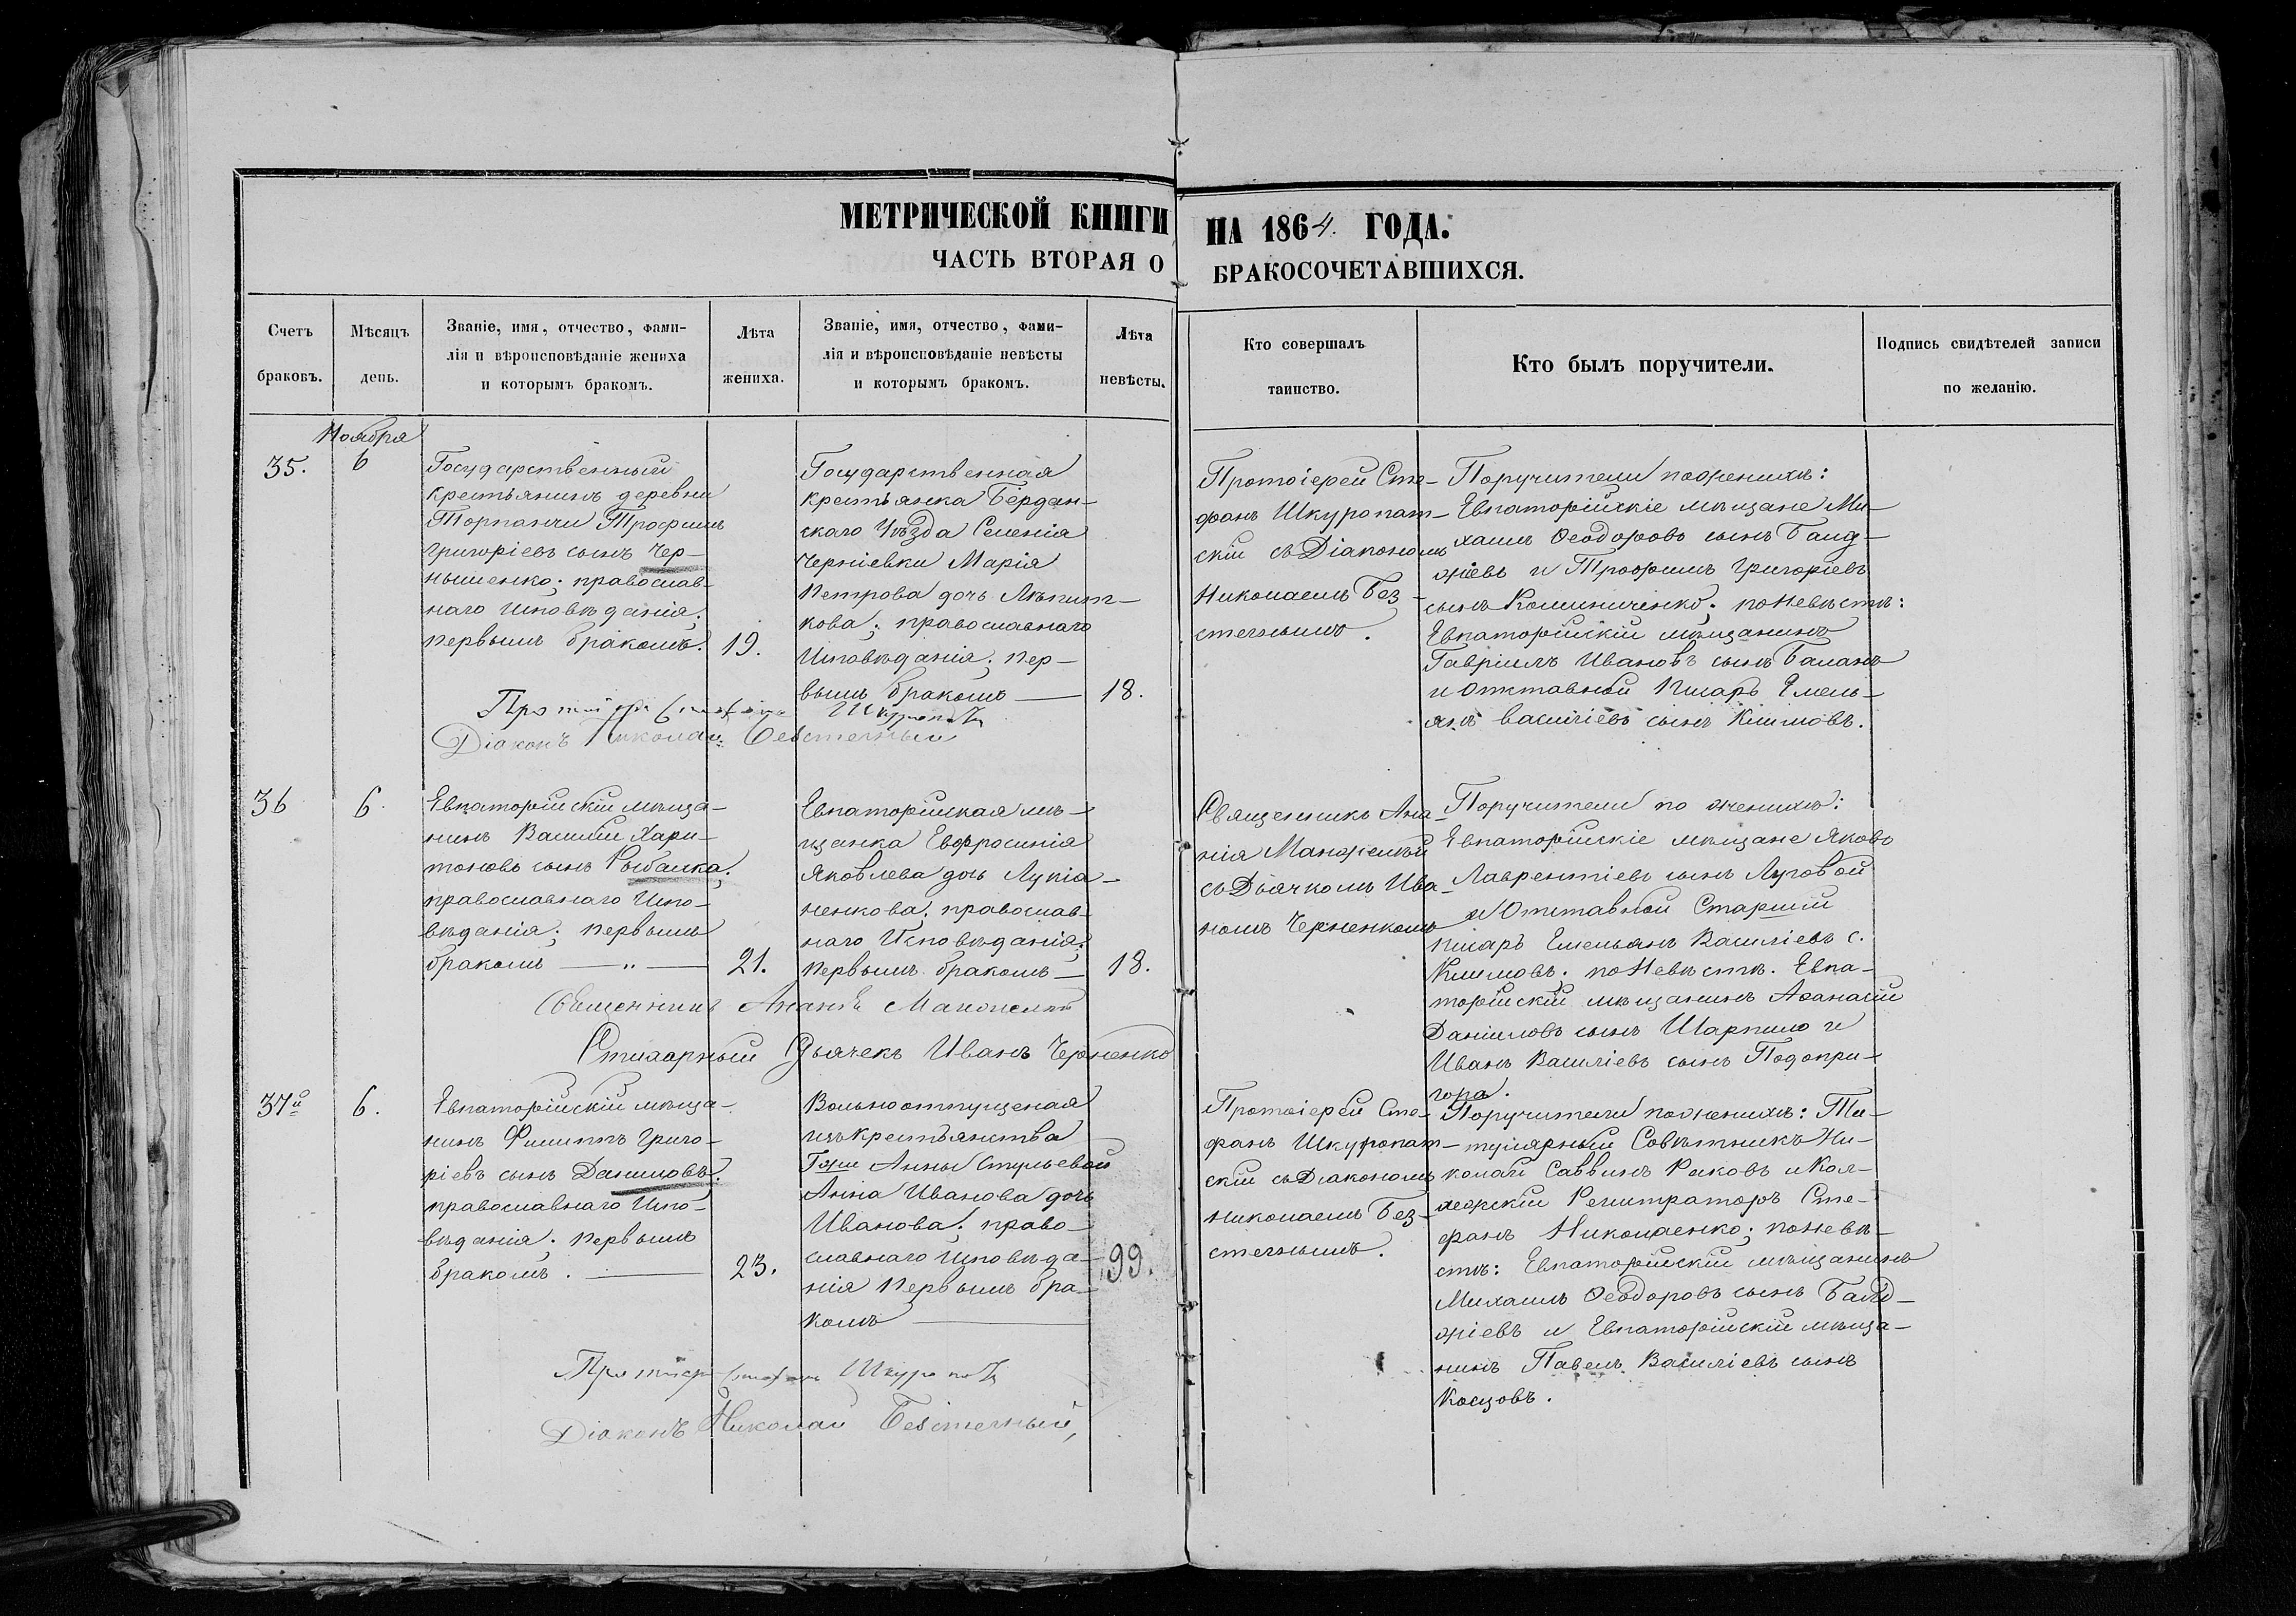 МЕТРИЧЕСКОЙ КНИГИ НА 1864. ГОДА.
ЧАСТЬ ВТОРАЯ О БРАКОСОЧЕТАВШИХСЯ.
Счетъ
браковъ.
Мѣсяцъ
день.
Званіе, имя, отчество, фами-
лія и вѣроисповѣданіе жениха
и которымъ бракомъ.
Лѣта
жениха.
Званіе, имя, отчество, фами-
лія и вѣроисповѣданіе невѣсты
и которымъ бракомъ.
Лѣта
невѣсты.
Кто совершалъ
таинство.
Кто былъ поручители.
Подпись свидѣтелей записи
по желанію.
Ноября
35.
6
Государственный
крестьянинъ деревни
Торпанчи Трофимъ
Григоріевъ сынъ Чер-
нышенко; православ-
наго Исповѣданія;
первымъ бракомъ.
19.
Государственная
крестьянка Бердан-
скаго Уѣзда Селенія
Черніевки Марія
Петрова дочь
кова; православнаго
Исповѣданія; пер-
вымъ бракомъ —
18.
Протоіерей Сте-
фанъ Шкуропат-
скій съ Діакономъ
Николаемъ Без-
стечнымъ.
Поручители по женихѣ:
Евпаторійскіе мѣщане Ми-
хаилъ Ѳеодоровъ сынъ
и Трофимъ Григоріевъ
сынъ Колиниченко; по Невѣстѣ:
Евпаторійскій мѣщанинъ
Гавріилъ Ивановъ сынъ Баланъ
и Отставной Писарь Емель-
янъ Василіевъ сынъ Климовъ.
Протоіерей Стефанъ
Діаконъ Николай Безстечный
36
6.
Евпаторійскій мѣща-
нинъ Василій Хари-
тоновъ сынъ Рыбалка;
православнаго Испо-
вѣданія; первымъ
бракомъ — „ —
21.
Евпаторійская мѣ-
щанка Евфросинія
Яковлева дочь Лукія-
ненкова; православ-
наго Исповѣданія;
первымъ бракомъ —
18.
Священникъ Ана-
нія Манжелѣй
съ Дьячкомъ Ива-
номъ Черненкомъ
Поручители по женихѣ:
Евпаторійскіе мѣщане Яковъ
Лаврентіевъ сынъ Луговой
и Отставной Старшій
писарь Емельянъ Василіевъ с.
Климовъ; по Невѣстѣ: Евпа-
торійскій мѣщанинъ Аѳанасій
Даниловъ сынъ Шарпило и
Иванъ Василіевъ сынъ Подопри-
гора.
Священникъ
Стихарный Дьячекъ Иванъ Черненко
37й
6.
Евпаторійскій мѣща-
нинъ Филиппъ Григо-
ріевъ сынъ Даниловъ;
православнаго Испо-
вѣданія; первымъ
бракомъ. —
23.
Вольноотпущеная
изъ Крестьянства
Гжи Анны Стульевой
Анна Иванова дочь
Иванова; право-
славнаго Исповѣда-
нія первымъ бра-
комъ —
99.
Протоіерей Сте-
фанъ Шкуропат-
скій съ Діакономъ
Николаемъ Без-
стечнымъ.
Поручители по женихѣ: Ти-
тулярный Совѣтникъ Ни-
колай Саввинъ Раковъ и Кол-
лежскій Регистраторъ Сте-
фанъ Николаенко; по Невѣ-
стѣ: Евпаторійскій мѣщанинъ
Михаилъ Ѳеодоровъ сынъ
и Евпаторійскій мѣща-
нинъ Павелъ Василіевъ сынъ
Косцовъ.
Протоіерей Стефанъ
Діаконъ Николай Безстечный